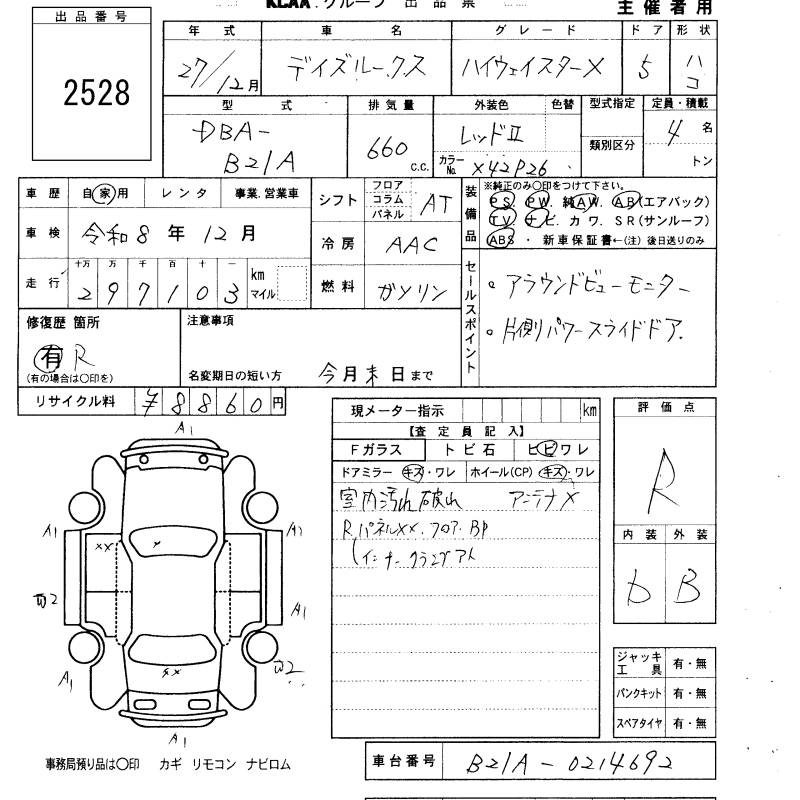 KCAA.グループ 出品票
主催者用
出品番号
2528
年式 車名 グレード ドア 形状
27/12月 デイズルークス ハイウェイスターX 5 ハコ
型式 排気量 外装色 色替 型式指定 定員・積載
DBA-
B21A
660 c.c.
レッドII
カラーNo. X42P26
類別区分
4 名
トン
車歴 自家用 レンタ 事業.営業車
車検 令和8年12月
走行 十万 万 千 百 十 一
297103 km マイル
シフト フロア コラム パネル AT
冷房 AAC
燃料 ガソリン
装備品
※純正のみ○印をつけて下さい。
PS. PW. 純AW. AB(エアバック)
TV ナビ. カワ. SR(サンルーフ)
ABS ・ 新車保証書←(注) 後日送りのみ
セールスポイント
。アラウンドビューモニター
。片側パワースライドドア.
修復歴 箇所
有 R
(有の場合は○印を)
注意事項
名変期日の短い方 今月末日まで
リサイクル料 ¥8860円
現メーター指示 km
【査定員記入】
Fガラス トビ石 ヒビワレ
ドアミラー キズ・ワレ ホイール(CP) キズ・ワレ
室内汚れ破れ アンテナX
RパネルXX.フロアBP
評価点
R
内装 外装
D B
ジャッキ工具 有・無
パンクキット 有・無
スペアタイヤ 有・無
A1
A1
A1
XX
A1
A1
XX
A1
事務局預り品は○印 カギ リモコン ナビロム
車台番号 B21A-0214692